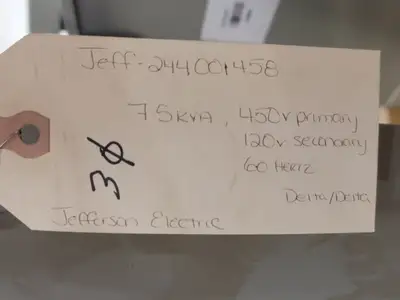 Jeff-244001458
75KVA, 450v primary
120v secondary
60 HERTZ
3Ø
Delta/Delta
Jefferson Electric